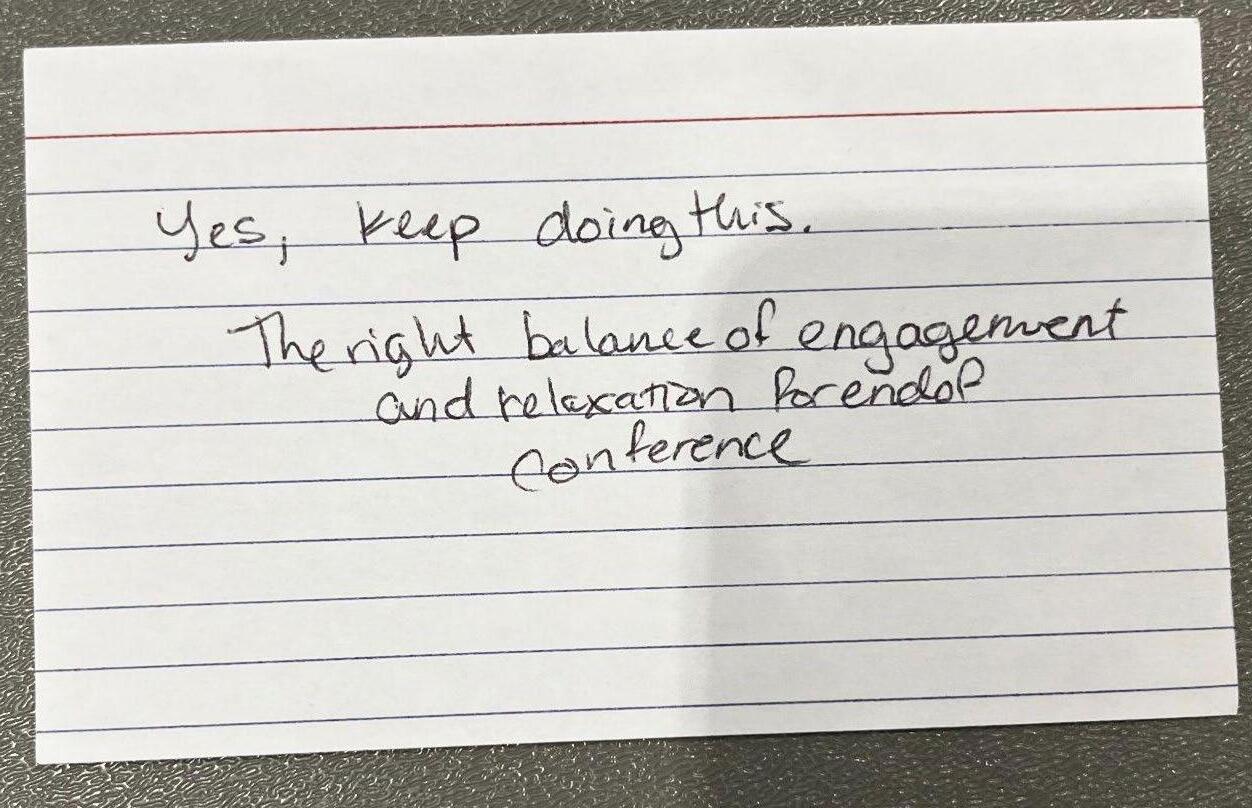 Yes, keep doing this.
The right balance of engagement
and relaxation for end of
conference